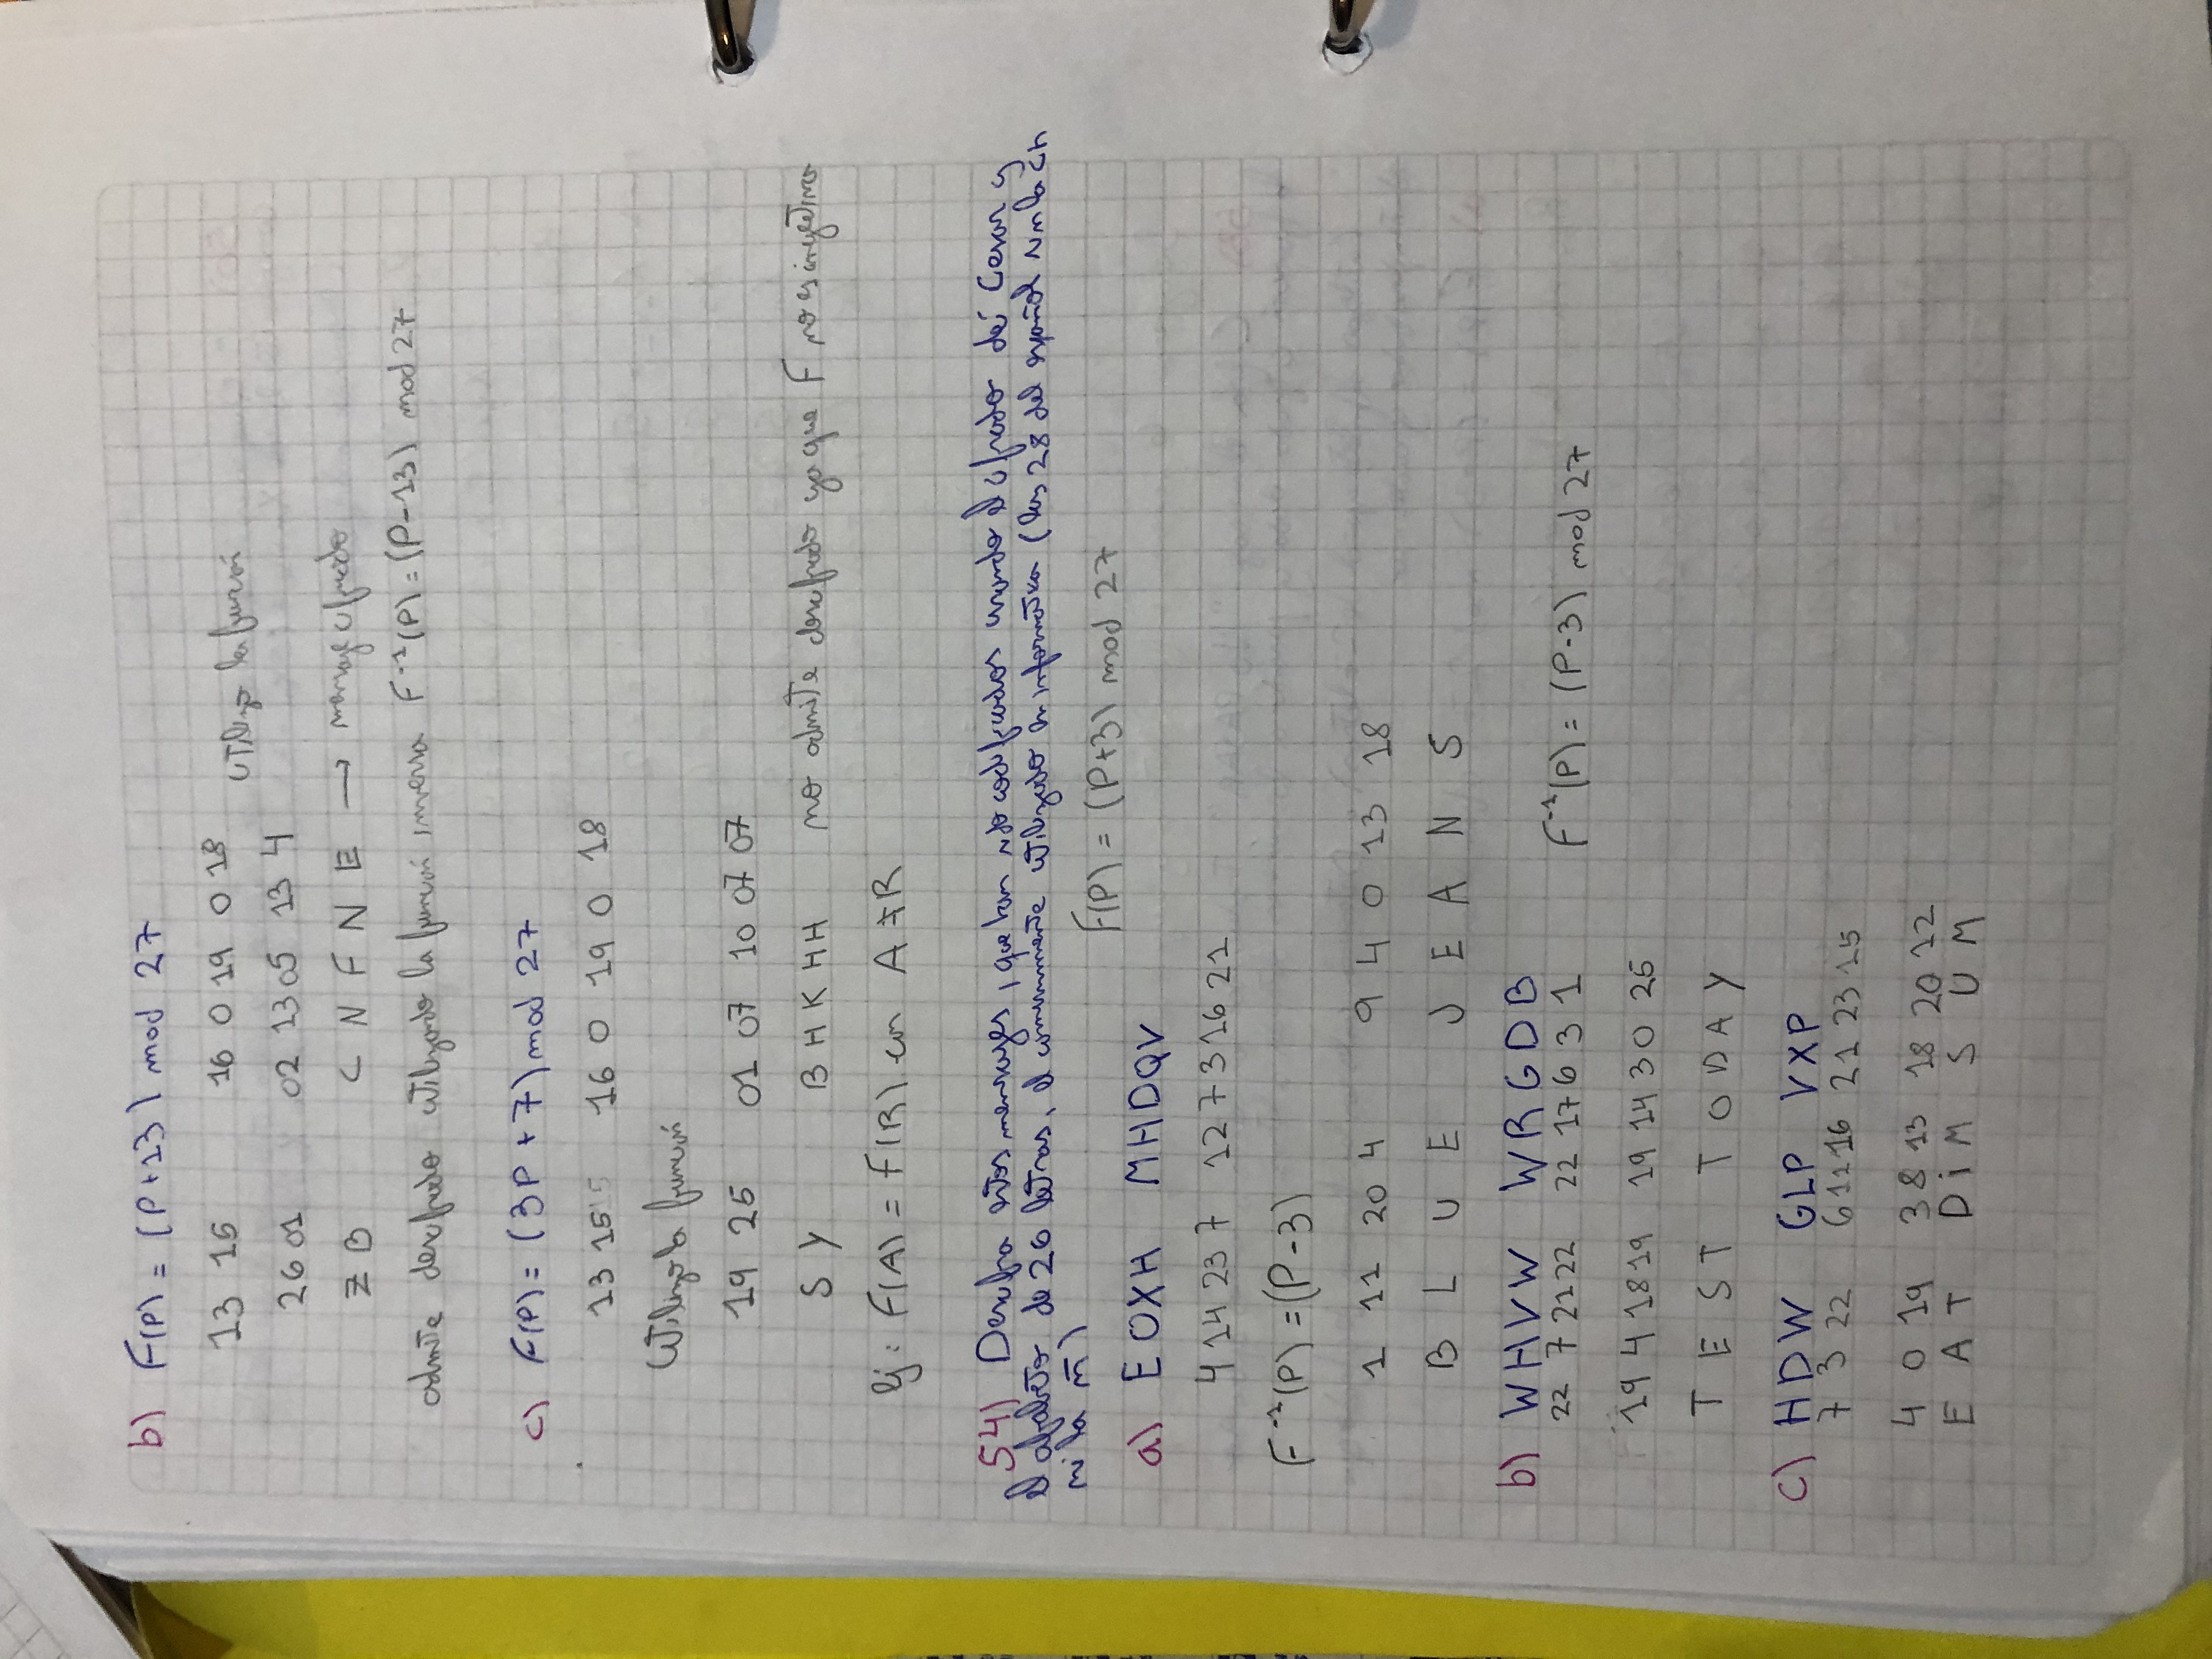 b) F(P) = (P+13) mod 27
13 15 16 0 19 0 18 Utilizo la función
26 01 02 13 05 13 4
Z B C N F N E → mensaje cifrado
admite descifrado utilizando la función inversa F⁻¹(P) = (P-13) mod 27
c) F(P) = (3P + 7) mod 27
13 15 16 0 19 0 18
Utilizo la función
19 25 01 07 10 07 07
S Y B H K H H no admite descifrado ya que F no es inyectiva
Ej: F(A) = F(R) con A ≠ R
54) Descifra estos mensajes, que han sido codificados usando el cifrado de Cesar y
el alfabeto de 26 letras, el comunmente utilizado en informática (las 28 del español sin la ch
ni la ñ)
F(P) = (P+3) mod 27
a) EOXH MHDQV
4 14 23 7 12 7 3 16 21
F⁻¹(P) = (P-3)
1 11 20 4 9 4 0 13 18
B L U E J E A N S
b) WHVW WRGDB
22 7 21 22 22 17 6 3 1 F⁻¹(P) = (P-3) mod 27
19 4 18 19 19 14 3 0 25
T E S T T O D A Y
c) HDW GLP VXP
7 3 22 6 11 16 21 23 15
4 0 19 3 8 13 18 20 12
E A T D i M S U M